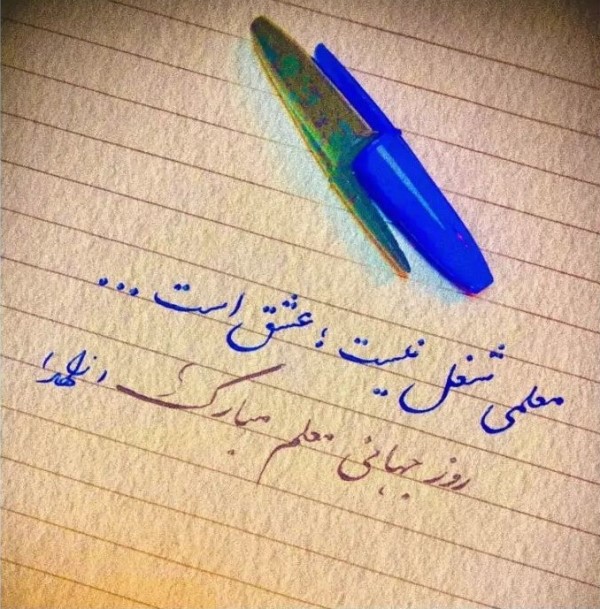 معلمی شغل نیست ؛ عشق است ...
روز جهانی معلم مبارک